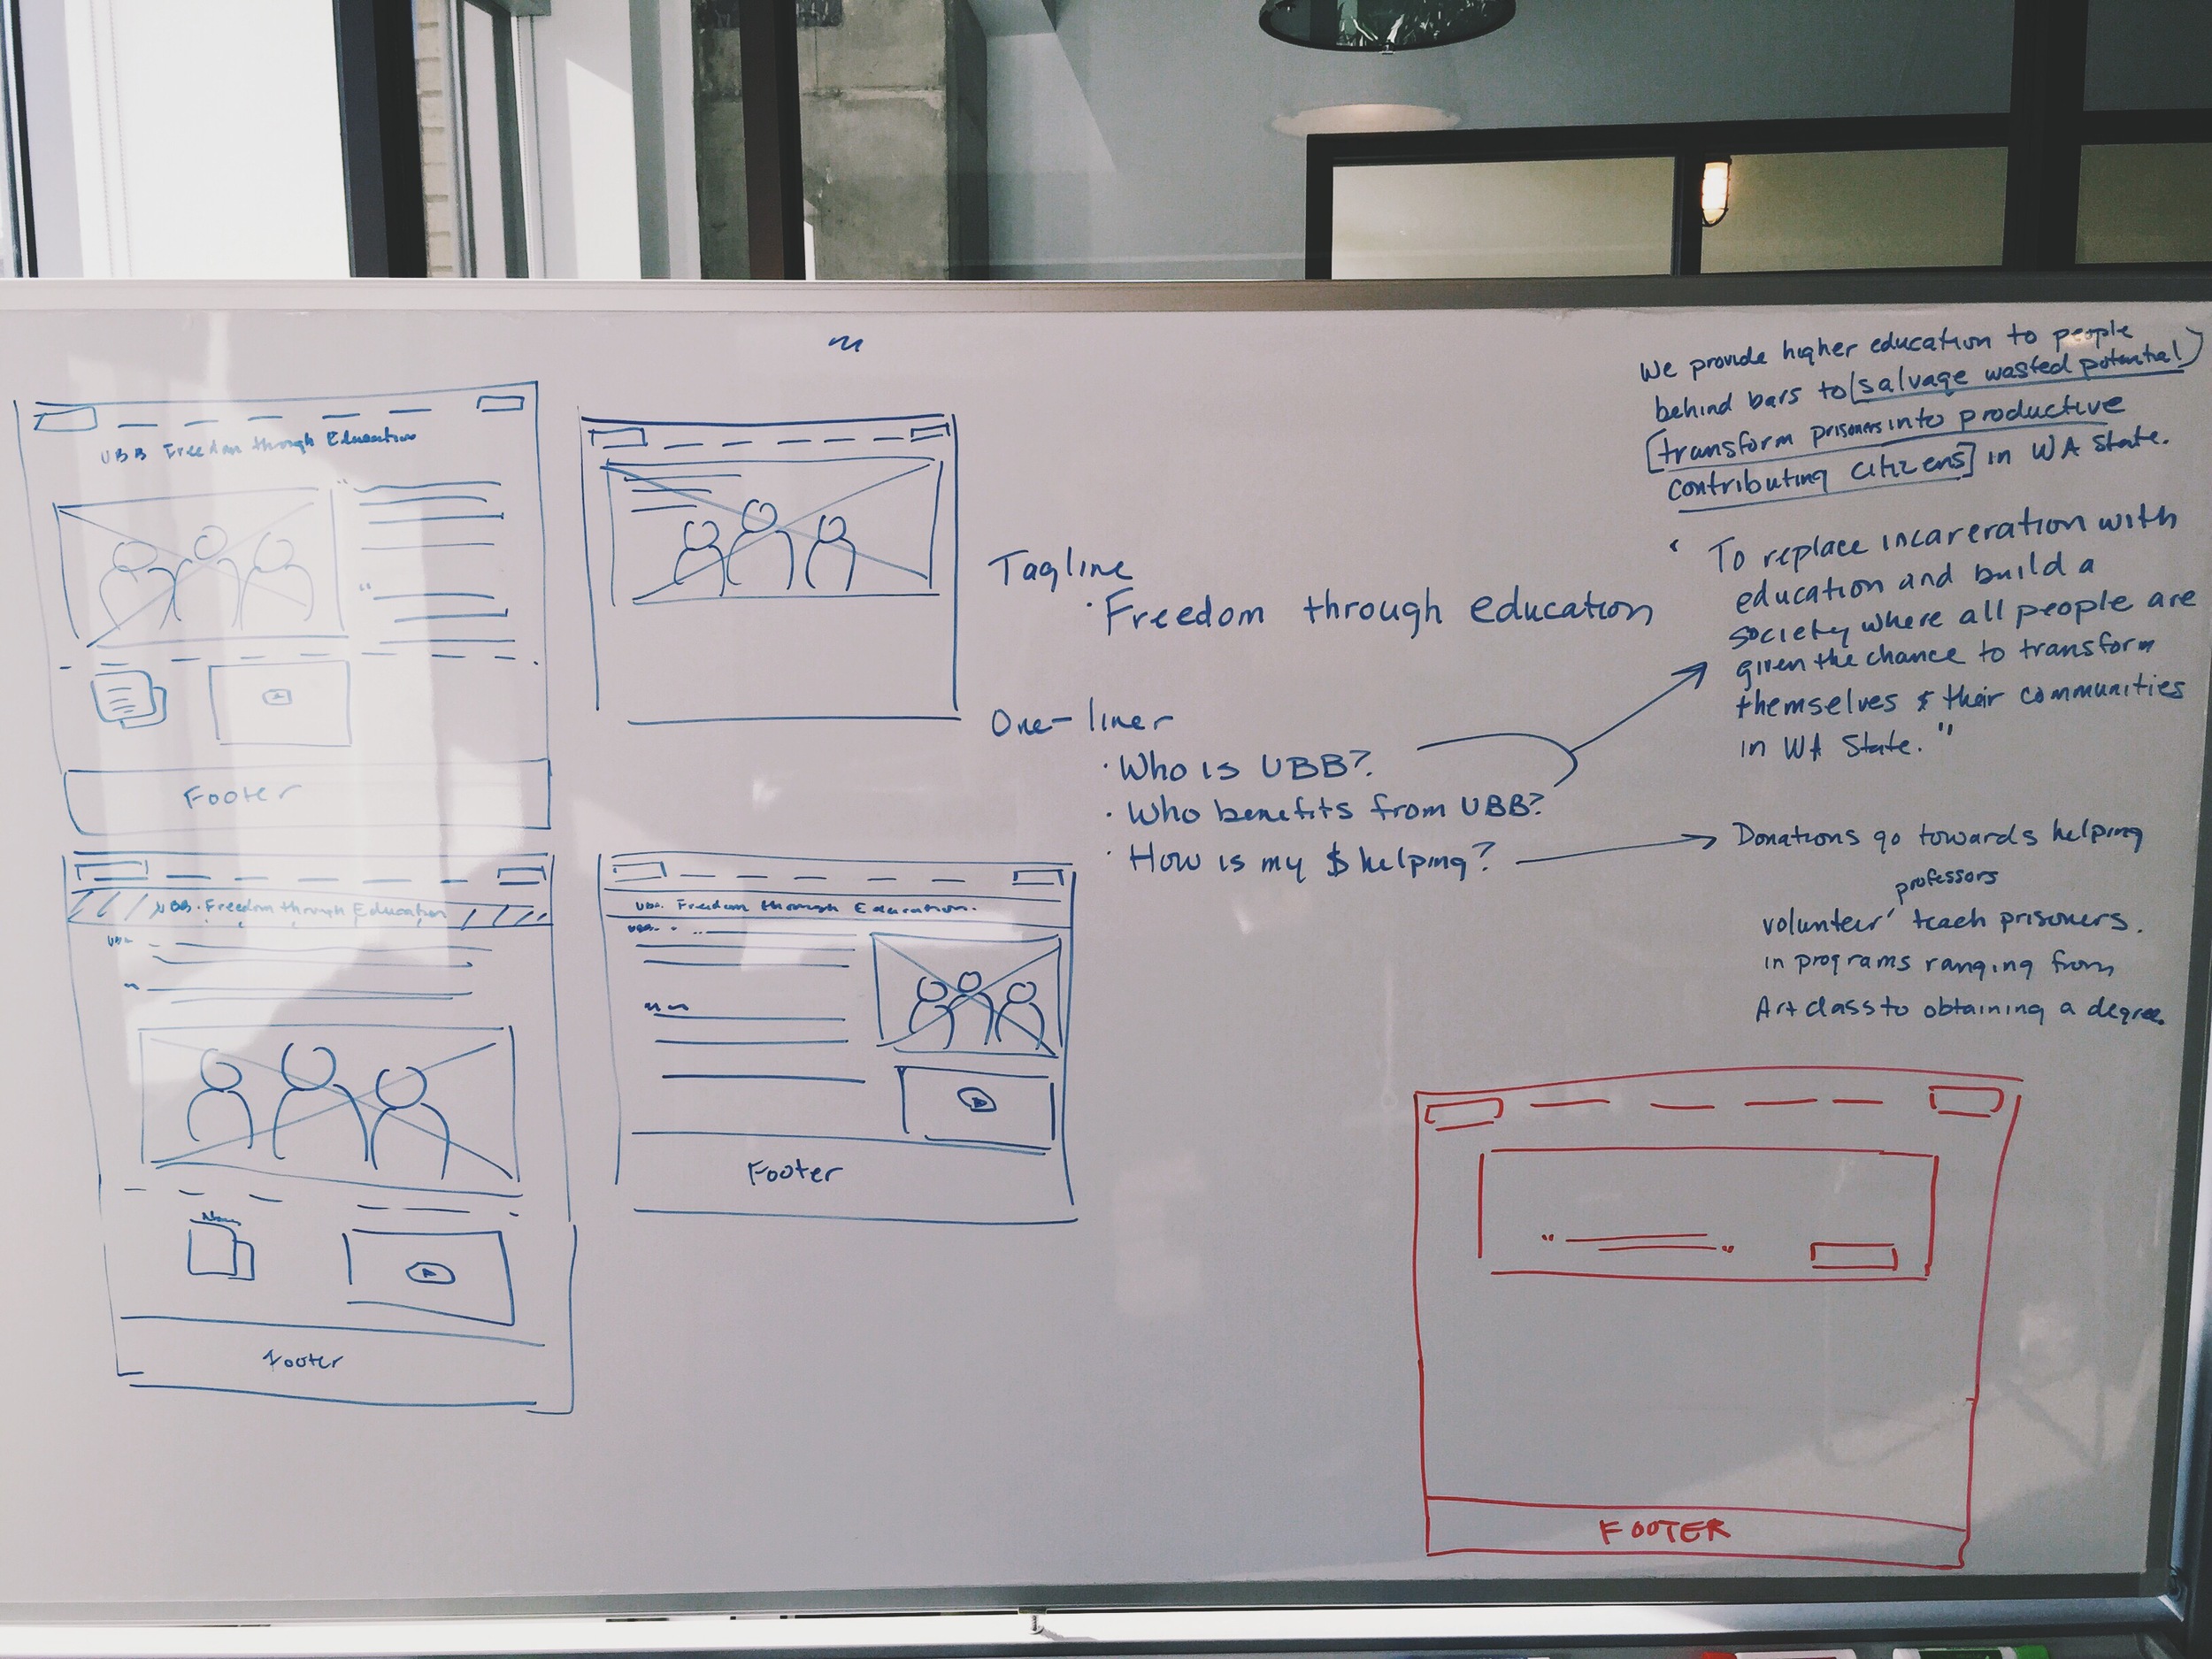 UBB Freedom through Education
Footer
UBB. Freedom through Education
UBB
Footer
UBB. Freedom through Education.
UBB.
Footer
Tagline
· Freedom through education
One-liner
· Who is UBB?
· Who benefits from UBB?
· How is my $ helping?
We provide higher education to people
behind bars to [salvage wasted potential)
[transform prisoners into productive
contributing citizens] in WA State.
" To replace incareration with
education and build a
society where all people are
given the chance to transform
themselves & their communities
in WA State."
Donations go towards helping
professors
volunteer' teach prisoners.
in programs ranging from
Art class to obtaining a degree.
FOOTER